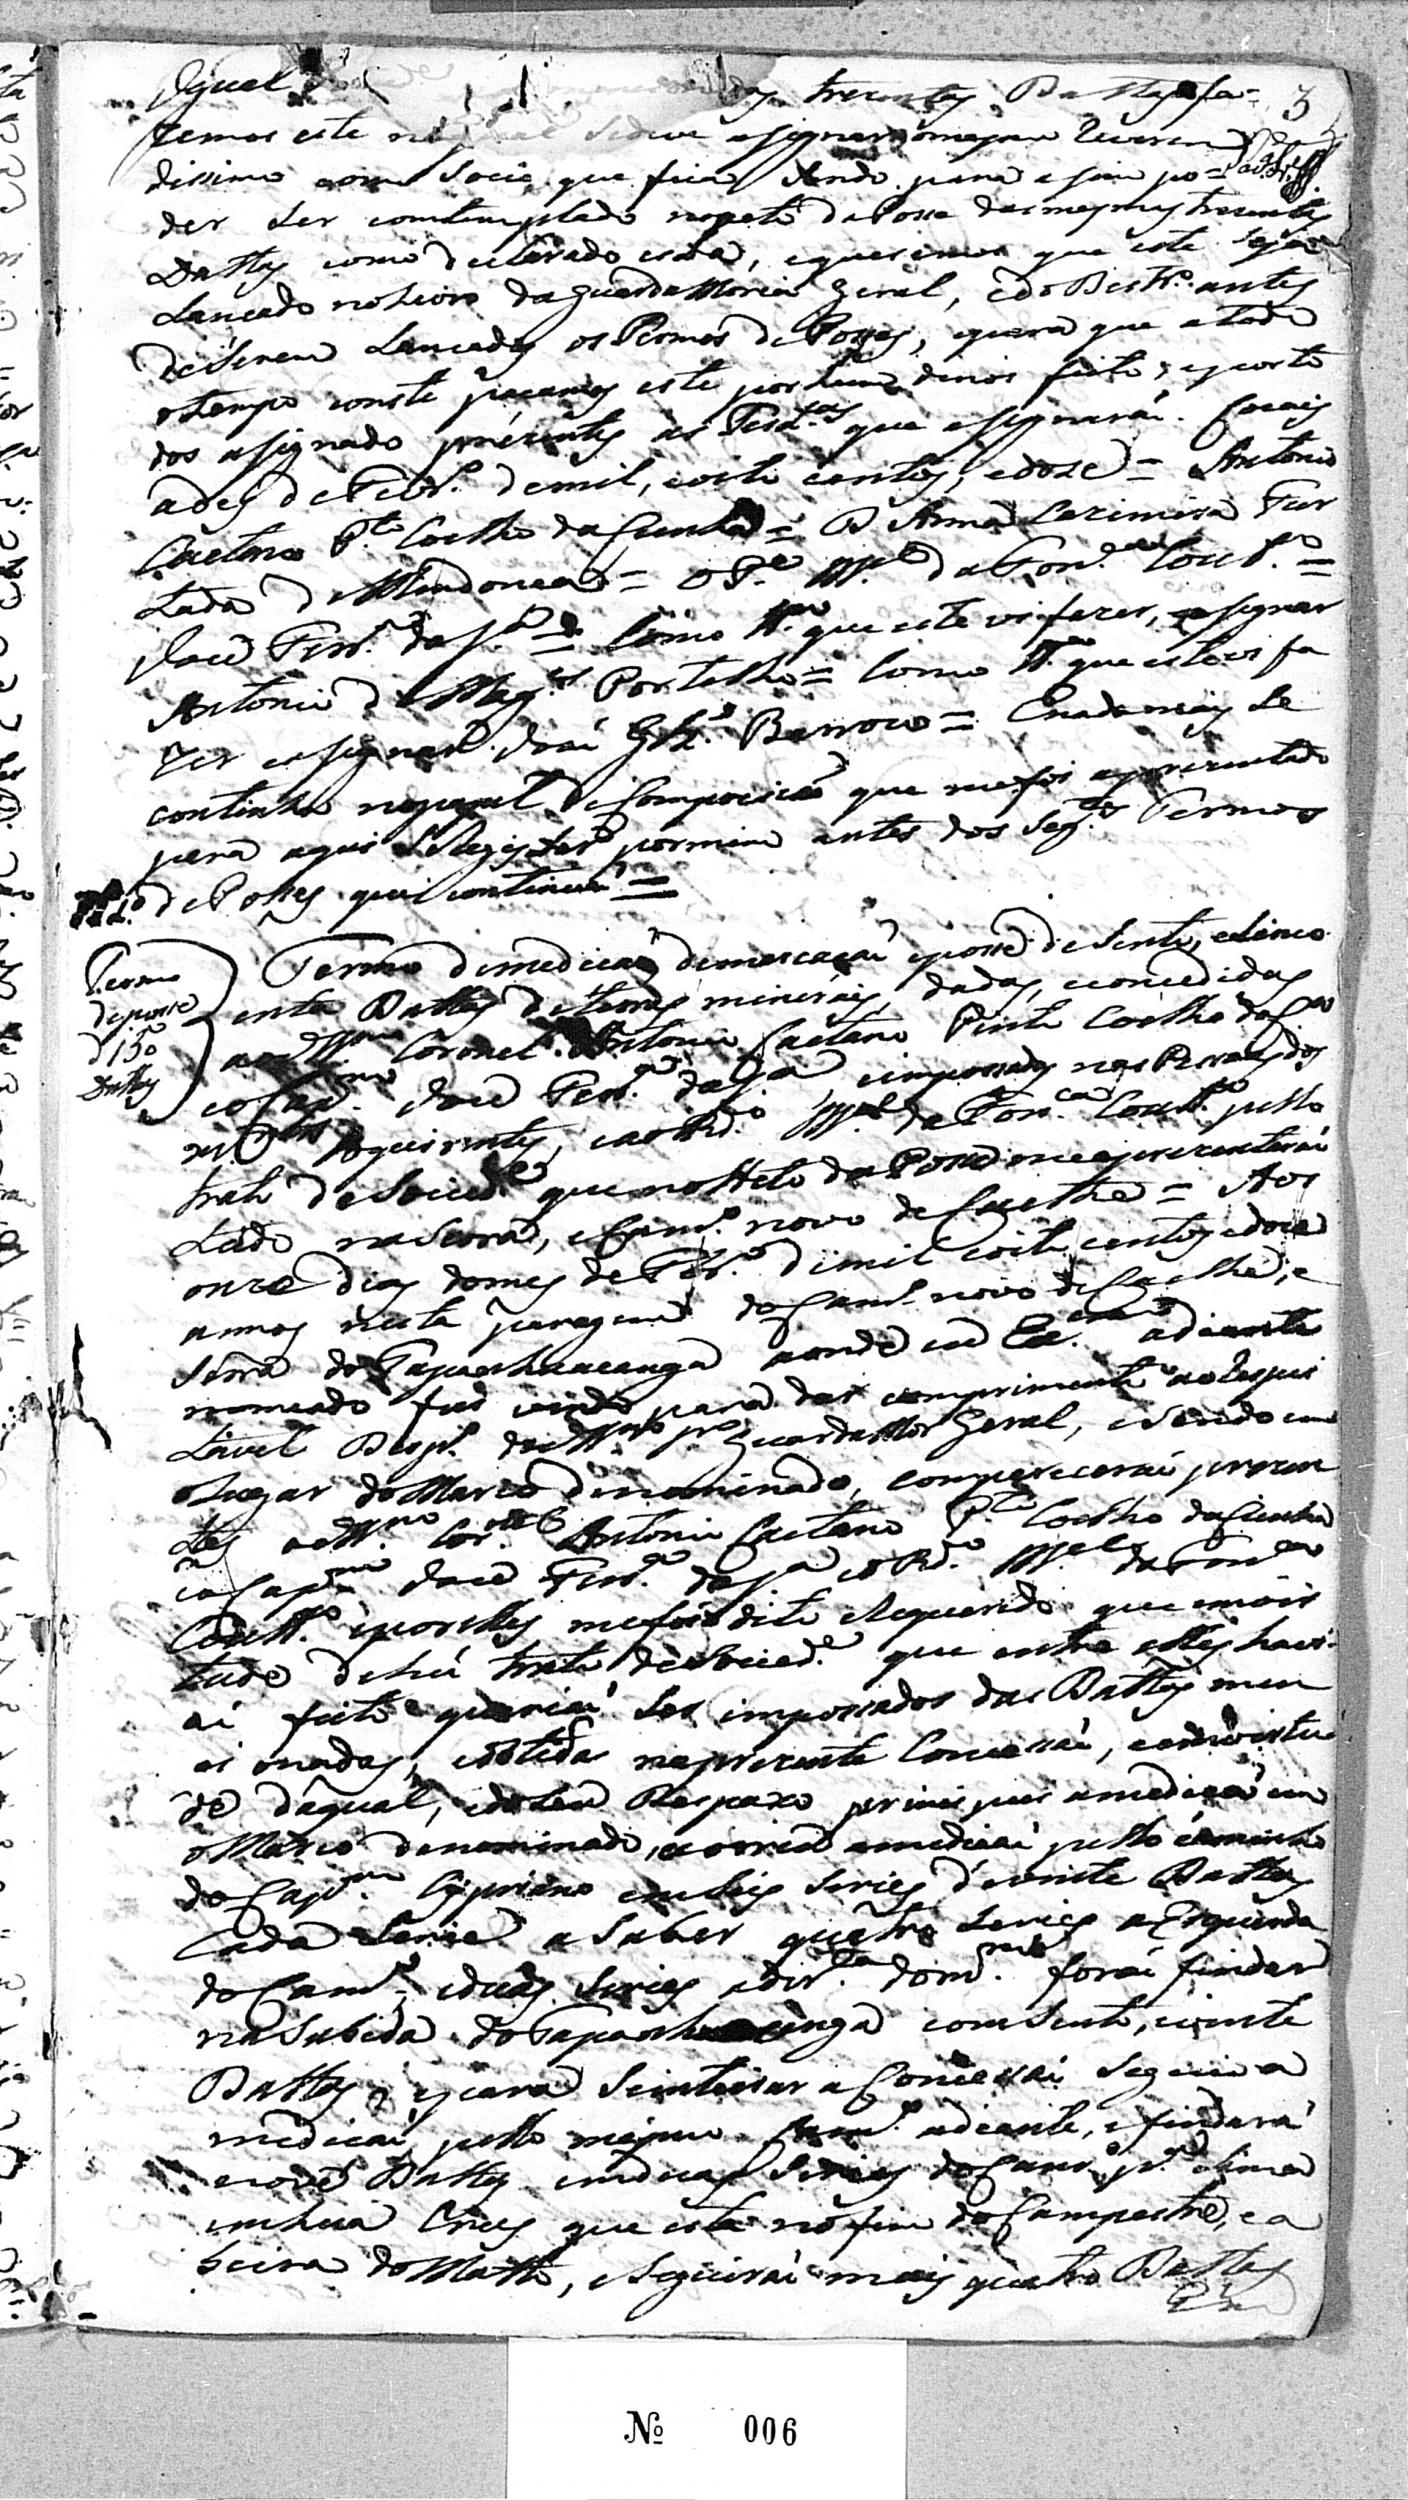 Igual trezentas Dattas fa= 3
zemos este
dissimo como Socio que fica Sendo para asim po=
der Ser contemplado na peti da Posse das mesmas trezentas
Dattas como declarado está, e queremos que este seja
Lancado no Livro da Guarda Moria Geral, e do Distr.º antes
de Serem Lancados os Termos de Posses, e para que a todo
o tempo conste pacamos este por hum de nós feito, e por to
dos asignado prezentes as Test.as que asignarão. Cocais
a dez de Fevr.º de mil, oito centos, e doze = Antonio
Caetano P.to Coelho da Cunha = D Anna Cazimira Fur
tada de Mendonca = O P.e M.el da Fon.ca Cout.º =
Joze Ferr.ª da S.ª = Como T.ª que este vi fazer, e asignar
Antonio de Mag.es Portelho = Como T.ª que este vi fa
zer e asignar. Joze Glz.' Barroco = E nada mais se
continha no papel de Compocicão que me foi aprezentado
para aqui o Registar por mim antes dos Seg.es Termos
de Posses que continuão =
Termo
de posse
d 150
Dattas
Termo de medicão demarcacão e posse de Sento, e Sinco
enta Dattas de terras mineraes, dadas, e concedidas
ao Ill.mo Coronel Antonio Caetano Pinto Coelho da C.ª
e o Cap.m Joze Ferr.ª da S.ª, e impossadas nas Pessoas dos
m.mos Requerentes, e ao Rd.º M.el da Fon.ca Cout.º pello
trato de Socied.e que no Acto da Posse me aprezentarão
Tudo na Serra, e Cam.º novo de Caethe = Aos
onze dias do mes de Fevr.º de mil oito centos e doze
annos nesta paragem do Cam.º novo de Caethe, e
Serra do Tapanhuacanga aonde eu Es.cam adiante
nomeado fui vindo para dar comprimento ao Respei
tavel Desp.º do Ill.mo Guarda Mor Geral, e Sendo em
o Lugar do Marco denominado, comparecerão prezen
tes o Ill.mo Cor.el Antonio Caetano P.to Coelho da Cunha
e o Cap.m Joze Ferr.ª da S.ª e o Rd.º M.el da Fon.ca
Cout.º e por elles me foi dito e Requerido que em vir
tude de hú trato de Socied.e que entre elles havi
ão feito querião Ser impossados das Dattas men
cionadas, e obtidas na prezente Concessão, e em virtu
de da qual, e do Seu Despaxo principiei a medicão em
o Marco denominado, e correo a medicão pello caminho
do Cap.m Cypriano em Seis Series de vinte Dattas
Cada Serie a Saber quatro Series a Esquerda
do Cam.º, e duas Series a dir.ta do m.mo forão findar
na Subida do Tapanhuacanga com Sento, e vinte
Dattas, e para Se inteirar a Concessão Seguio a
medicão pello mesmo Cam.º adiante, e findará
e nove Dattas em duas Series do Cam.º p.ª Sima
em huã Cruz que está no fim do Campestre, e a
beira do Matto, e Seguirão mais quatro Dattas
Nº 006